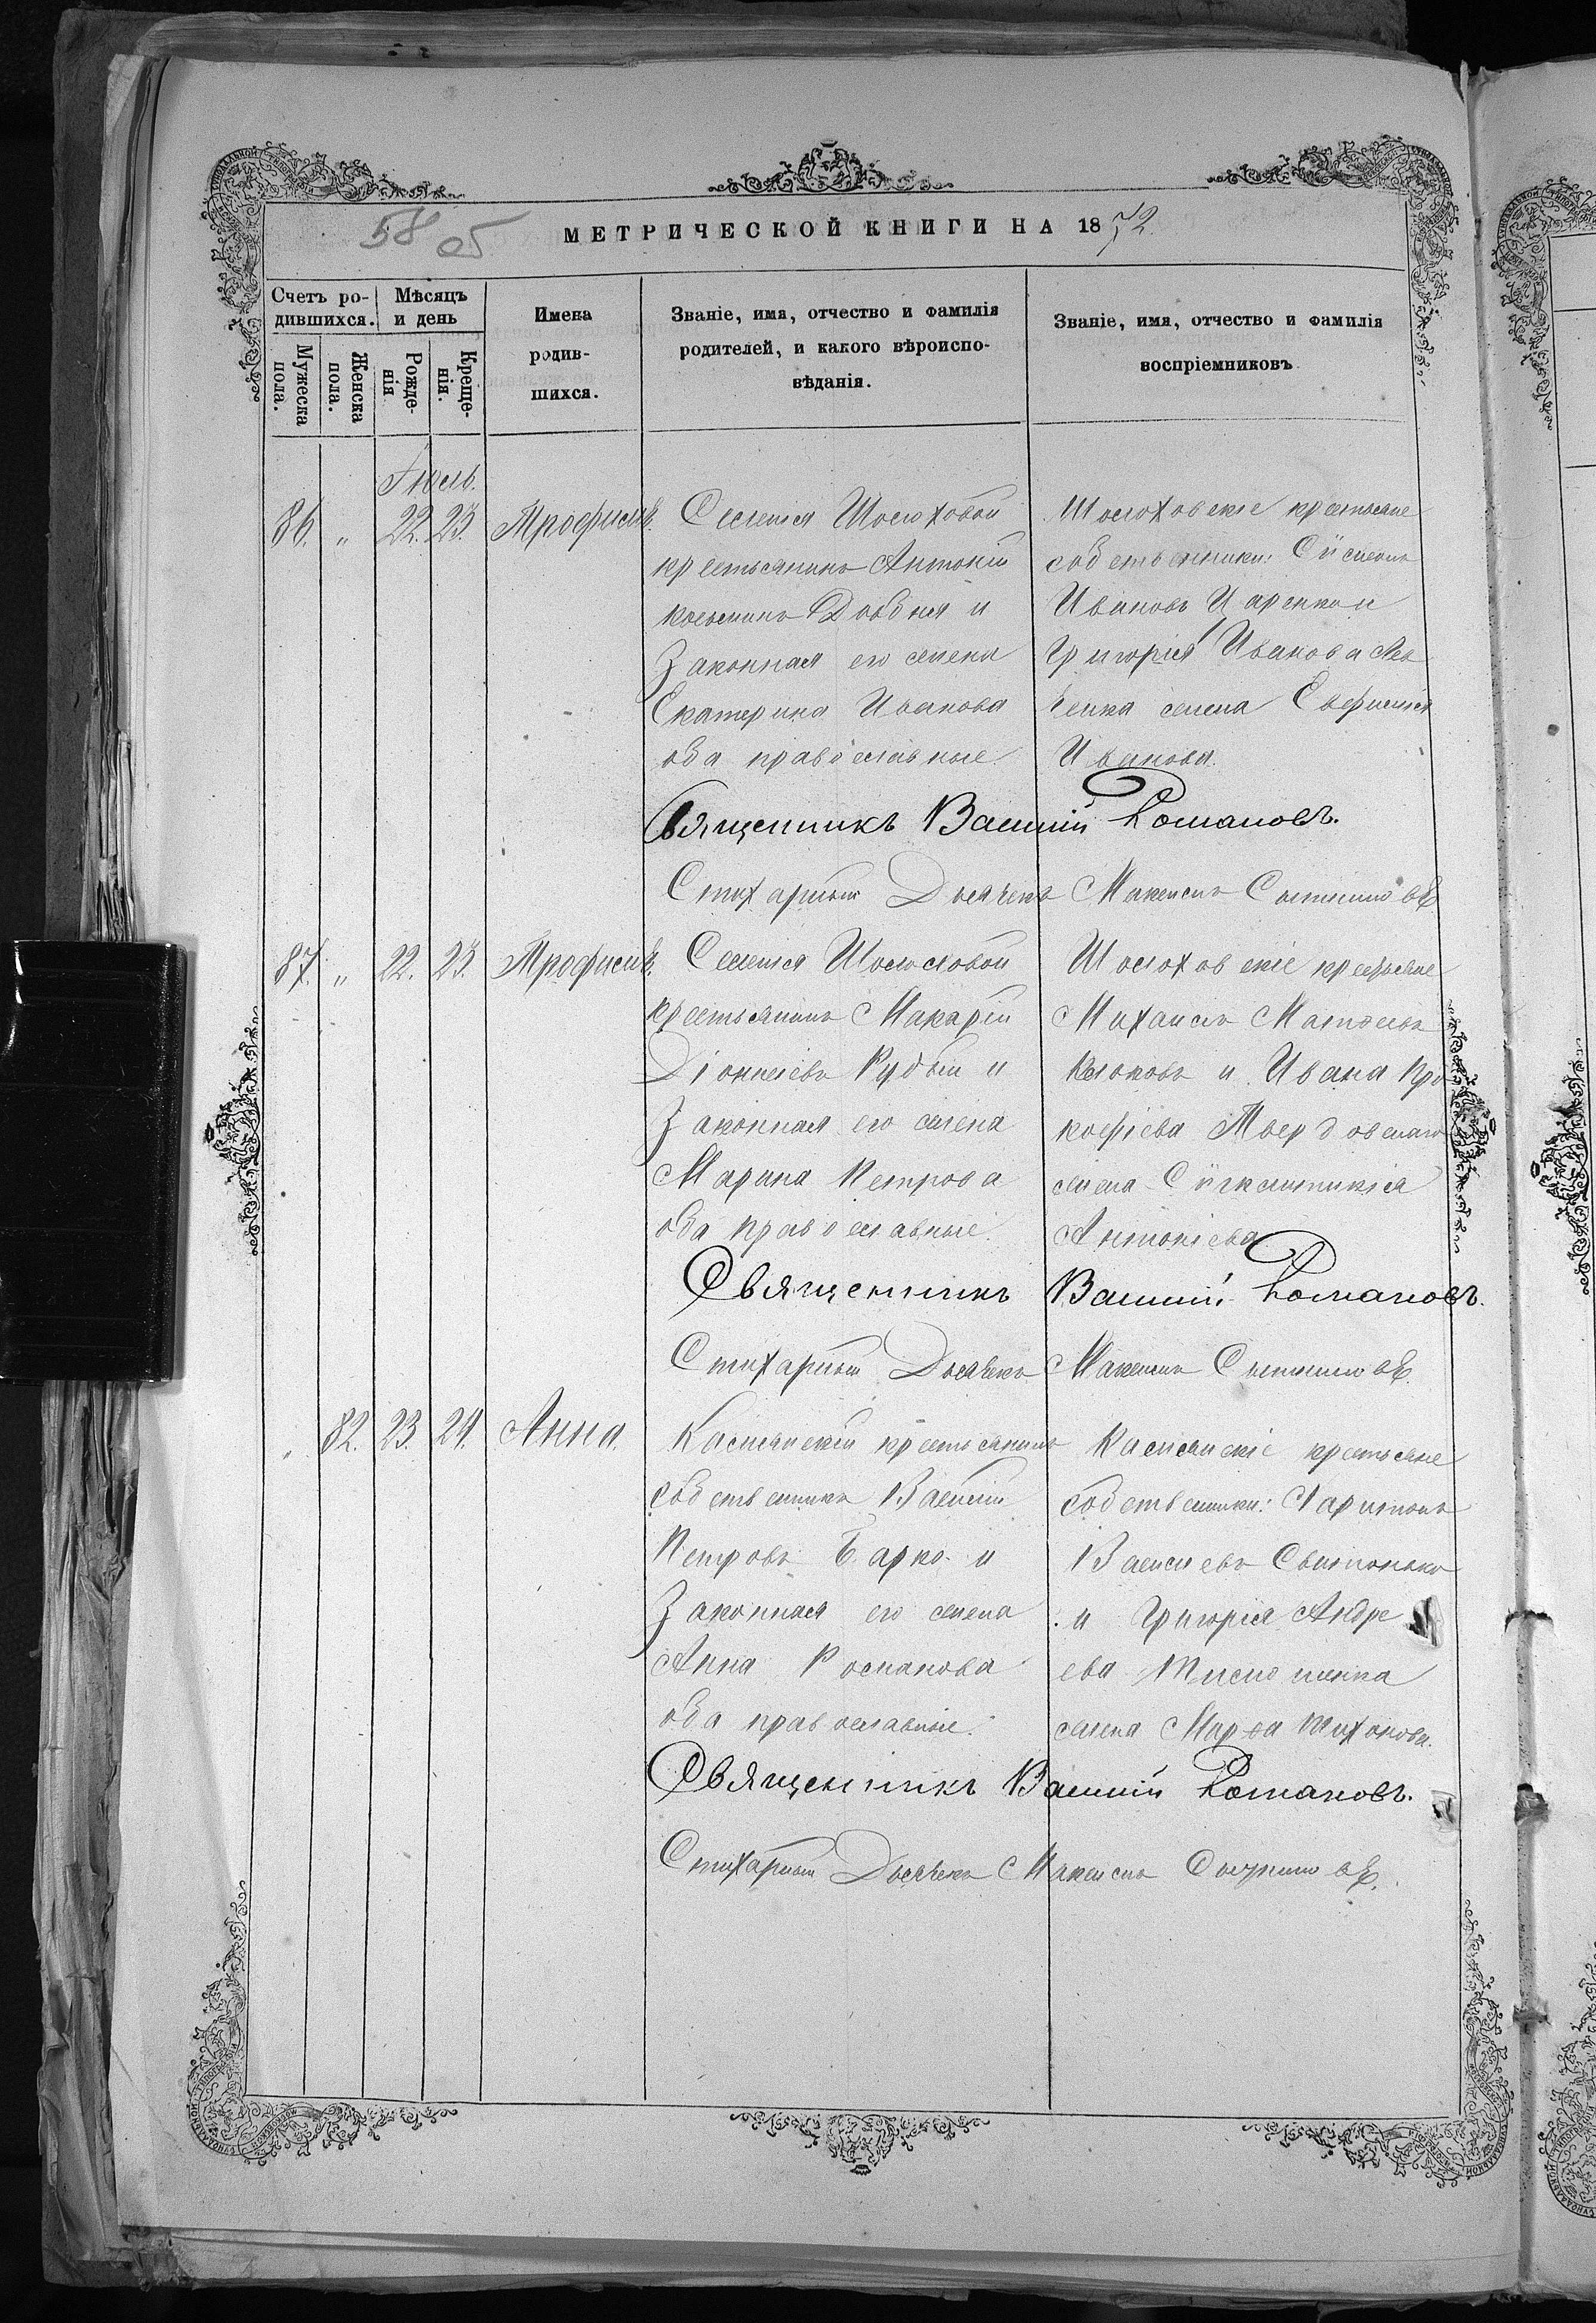 58 об
МЕТРИЧЕСКОЙ КНИГИ НА 1872
Счетъ ро-
дившихся.
Мужеска
пола.
Женска
пола.
Мѣсяцъ
и день
Рожде-
нія
Креще-
нія.
Имена
родив-
шихся.
Званіе, имя, отчество и фамилія
родителей, и какого вѣроиспо-
вѣданія.
Званіе, имя, отчество и фамилія
воспріемниковъ
Іюль.
86. " 22. 23. Трофимъ.
Селенія Шолохова
крестьянинъ Антоній
Добня и
законная его жена
Екатерина Иванова
оба православные.
Шолоховскіе крестьяне
собственники: Симеонъ
Ивановъ Царенко и
Григорія Иванова Лев
ченка жена Евфимія
Иванова.
Священникъ Василій Романовъ.
Стихарный Дьячекъ Максимъ
87. " 22. 23. Трофимъ.
Селенія Шолохова
крестьянинъ Макарій
Діонисіевъ Рудый и
законная его жена
Марина Петрова
оба православные.
Шолоховскіе крестьяне
Михаилъ Матвеевъ
и Ивана Про
кофіева Твердовскаго
жена Синклитикія
Антоніева
Священникъ Василій Романовъ.
Стихарный Дьячекъ Максимъ
" 82. 23. 24. Анна.
крестьянинъ
собственникъ Василій
Петровъ Барко и
законная его жена
Анна Романова
оба православные.
крестьяне
собственники: Харитонъ
Васильевъ Свитонько
и Григорія Андре
ева Тимошенка
жена Марѳа Тихонова.
Священникъ Василій Романовъ.
Стихарный Дьячекъ Максимъ